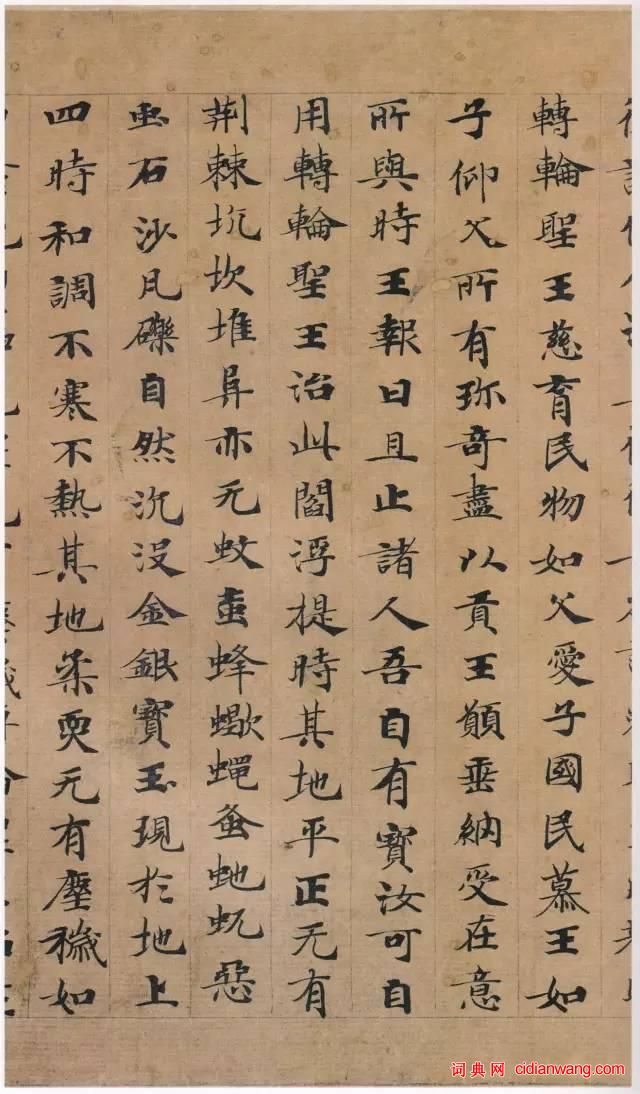 轉輪聖王慈育民物如父愛子國民慕王如
子仰父所有珎奇盡以貢王願垂納受在意
所與時王報曰且止諸人吾自有寶汝可自
用轉輪聖王治此閻浮提時其地平正无有
荊棘坑坎堆阜亦无蚊虻蜂蠍蠅蚤虵蚖惡
虫石沙瓦礫自然沉没金銀寶玉現於地上
四時和調不寒不熱其地柔耎无有塵穢如
词典网 cidianwang.com